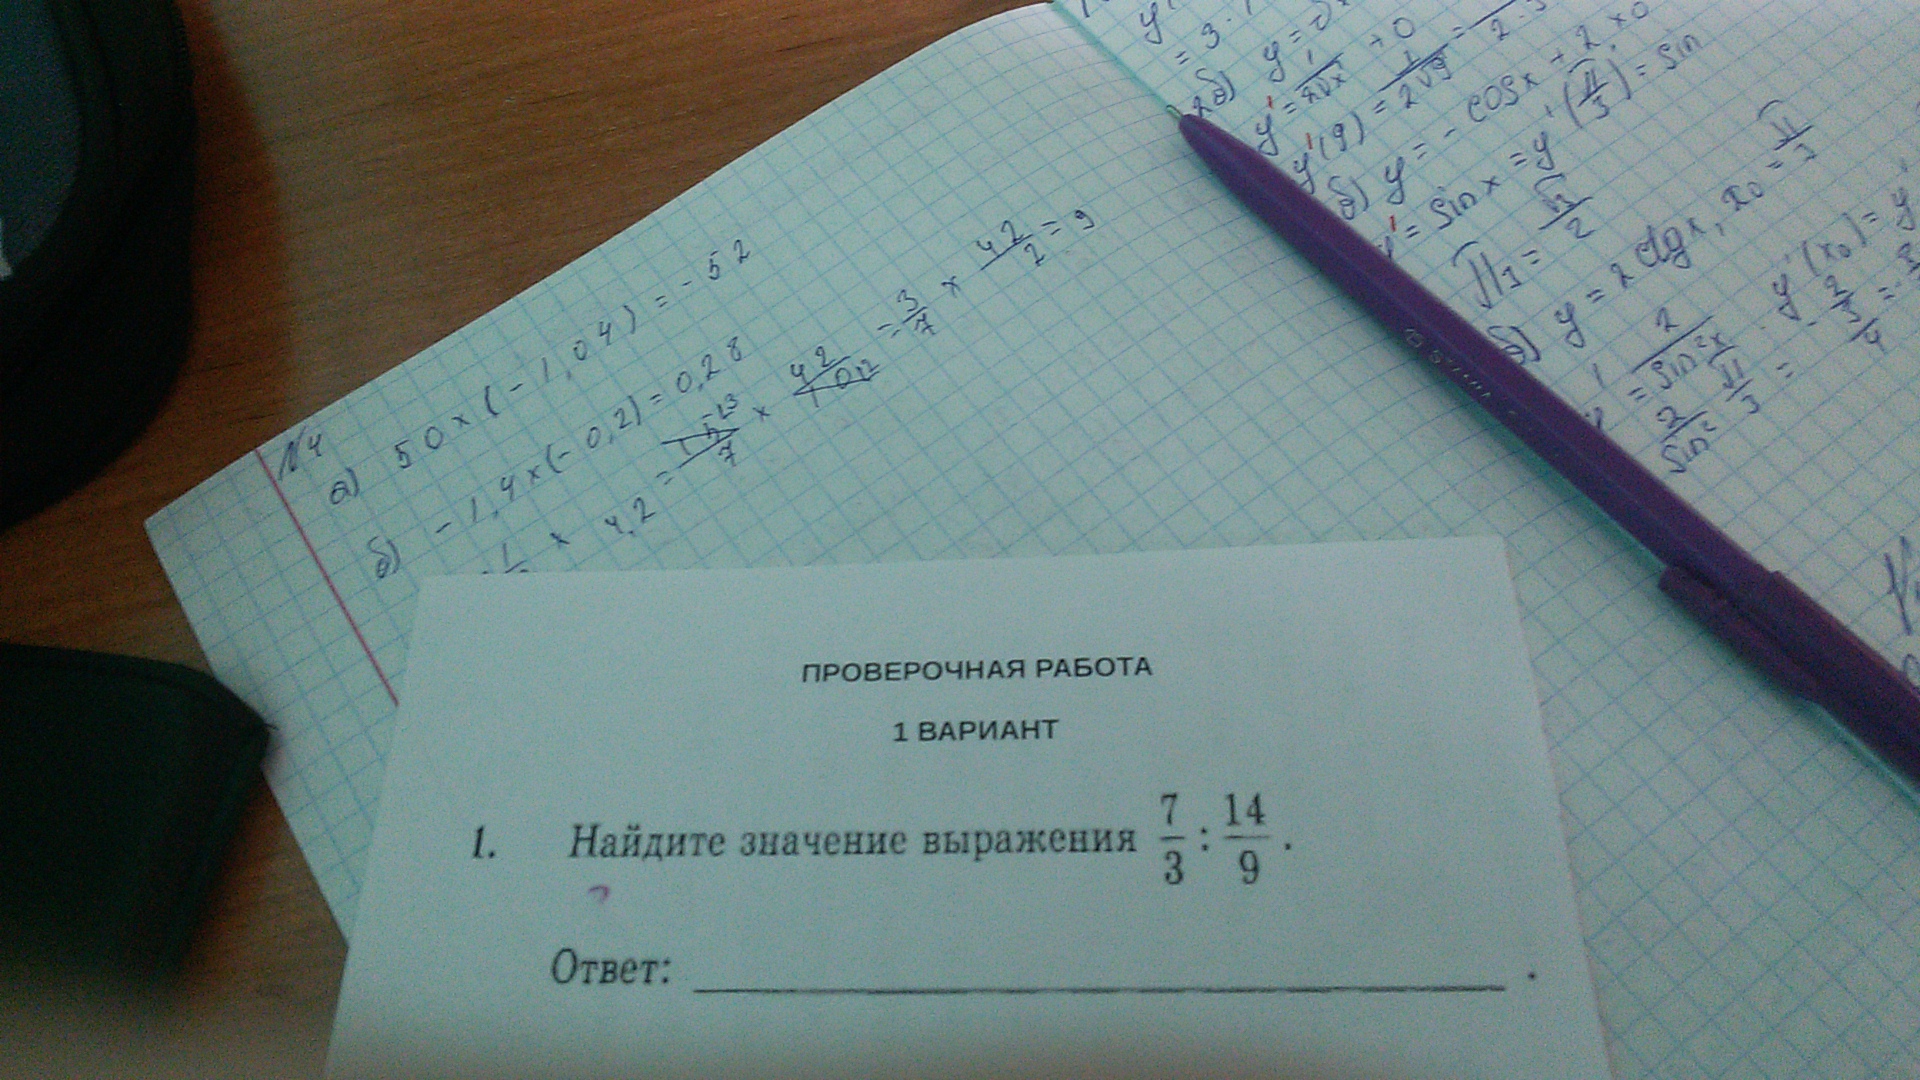 N4
а) 50 × (-1,04) = -52
б) -1,4 × (-0,2) = 0,28
× 4,2 = 7 × 42 = 3/7 × 42/2 = 9
= 3 ·
б) y =
y' = 1/2√x + 0
y'(9) = 1/2√9 =
б) y = -cosx + 2, x0
y' = sin x = y'(π/3) = sin
π/3 = √3/2
б) y = 2 ctgx, x0 = π/3
2/sin²x y'(x0) = y'
2/sin² π/3 =
ПРОВЕРОЧНАЯ РАБОТА
1 ВАРИАНТ
1. Найдите значение выражения 7/3 : 14/9 .
Ответ: .